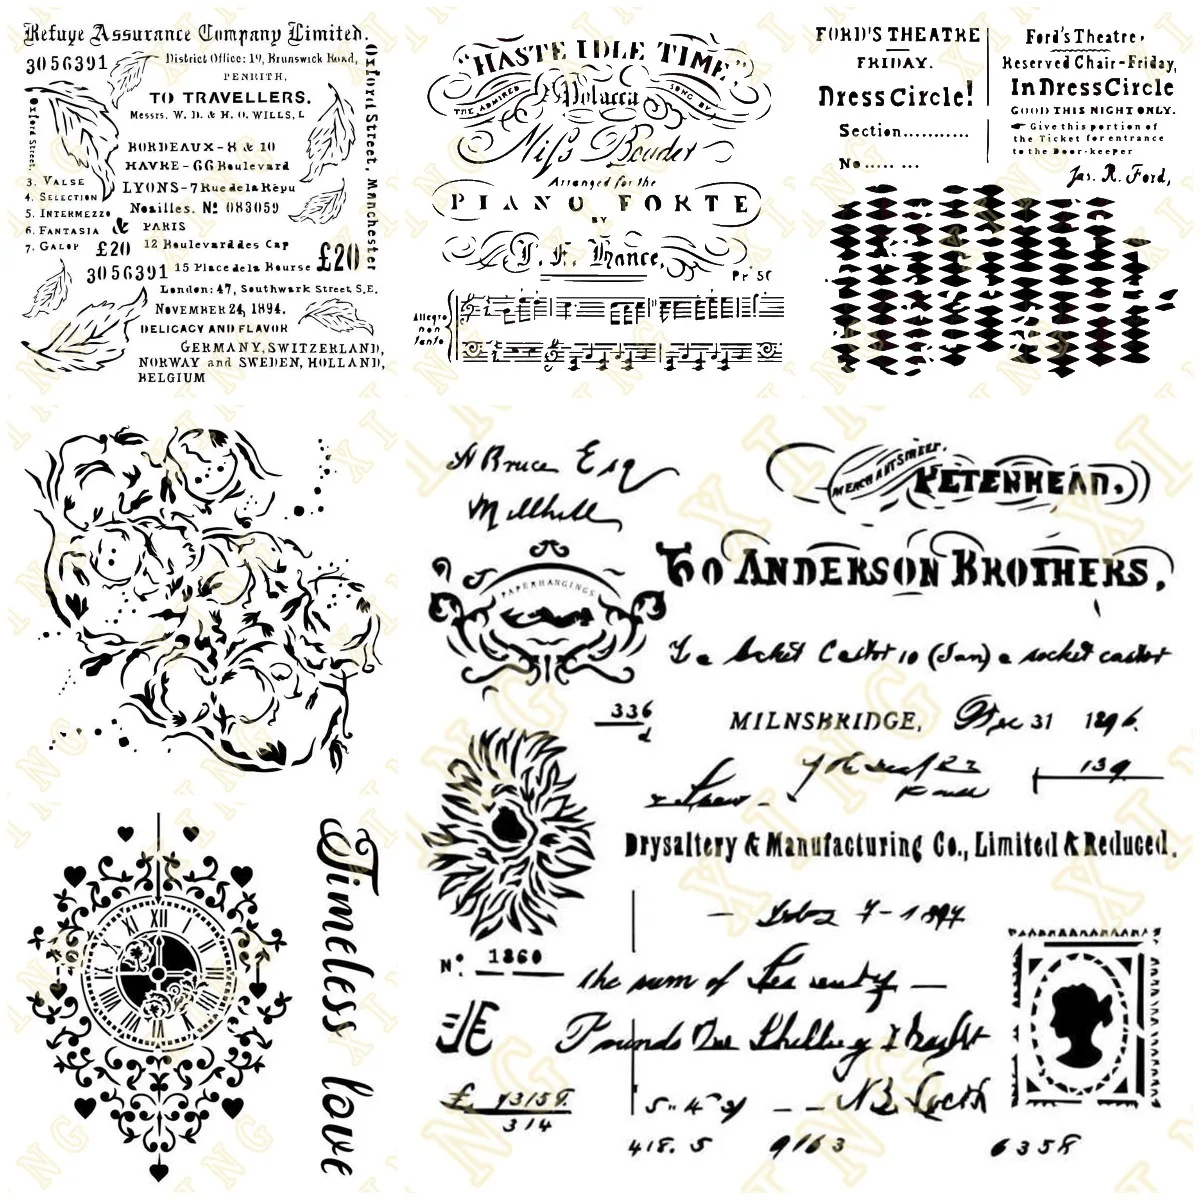 Refuge Assurance Company Limited.
3056391
District Office: 19, Brunswick Road,
PENRITH,
TO TRAVELLERS.
Messrs. W. D. & H. O. WILLS, L
Oxford Street,
Oxford Street, Manchester
BORDEAUX - 8 & 10
HAVRE - 66 Boulevard
3. VALSE
LYONS - 7 Rue de la Répu
4. SELECTION
Noailles. Nº 083059
5. INTERMEZZO
6. FANTASIA & PARIS
7. GALOP £20 12 Boulevard des Cap
£20
3056391 15 Place de la Bourse
London: 47, Southwark Street, S.E.
NOVEMBER 24, 1894.
DELICACY AND FLAVOR
GERMANY, SWITZERLAND,
NORWAY and SWEDEN, HOLLAND,
BELGIUM
"HASTE IDLE TIME,"
THE ADMIRED Polacca SONG BY
Miss Bouder
Arranged for the
PIANO FORTE
BY
L. F. Hance,
Pr 50
Allegro
non
tanto
FORD'S THEATRE
FRIDAY.
Dress Circle!
Section...........
No..... ...
Ford's Theatre,
Reserved Chair-Friday,
In Dress Circle
GOOD THIS NIGHT ONLY.
Give this portion of
the Ticket for entrance
to the Door-keeper
Jas. R. Ford,
Timeless love
XII
A Bruce Esq
Millhill
MERCHANT STREET.
PETENHEAD,
To ANDERSON BROTHERS,
PAPERHANGINGS
To a socket Castor 10 (Jan) a socket castor
336
d
MILNSBRIDGE, Dec 31 1896.
139
Drysaltery & Manufacturing Co., Limited & Reduced.
7-1897
Nº. 1860
the sum of
Pounds One Shelling & Eight
£ 43158.
314
5" 4" 31
418. 5 9163 6358
XI NG